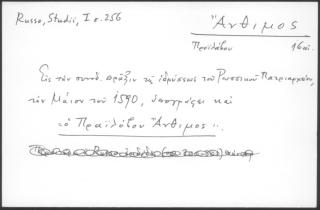 Russo, Studii, I σ. 256
Ἄνθιμος
Προϊλάβου 16 αἰ.
Εἰς τὴν συνοδ. πρᾶξιν τῆς ἱδρύσεως τοῦ Ρωσσικοῦ Πατριαρχείου,
τὸν Μάϊον τοῦ 1590, ὑπογράφει καὶ
"ὁ Πραϊλάβου Ἄνθιμος".